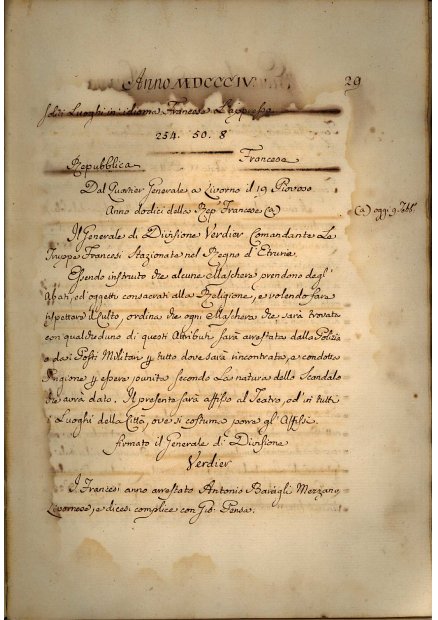 Anno MDCCCIV. 29
soliti Luoghi in idioma Francese L'appresso
254. 50. 8
Repubblica Francese
Dal Quartier Generale a Livorno il 19 Piovoso
Anno dodici della Rep. Francese (a) (a) oggi 9. Feb.
Il Generale di Divisione Verdier Comandante Le
Truppe Francesi Stazionate nel Regno d'Etruria
Essendo instruito che alcune Maschere prendono degl'
Abiti, ed oggetti consacrati alla Religione, e volendo fare
rispettare il Culto, ordina che ogni Maschera che sarà trovata
con qualcheduno di questi Attributi sarà arrestata dalla Polizia
o dai Posti Militari p tutto dove sarà rincontrata, e condotta
Prigione p essere punita secondo La natura dello Scandalo
che avrà dato. Il presente sarà affisso al Teatro, ed in tutti
Luoghi della Città, ove si costuma porre gl'Affissi.
firmato il Generale di Divisione
Verdier
I Francesi anno arrestato Antonio Baragli
Livornese, e dicesi complice con Gio: